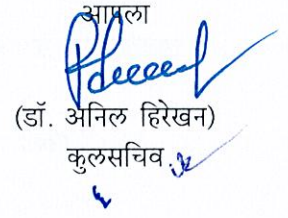 आपला
(डॉ. अनिल हिरेखन)
कुलसचिव